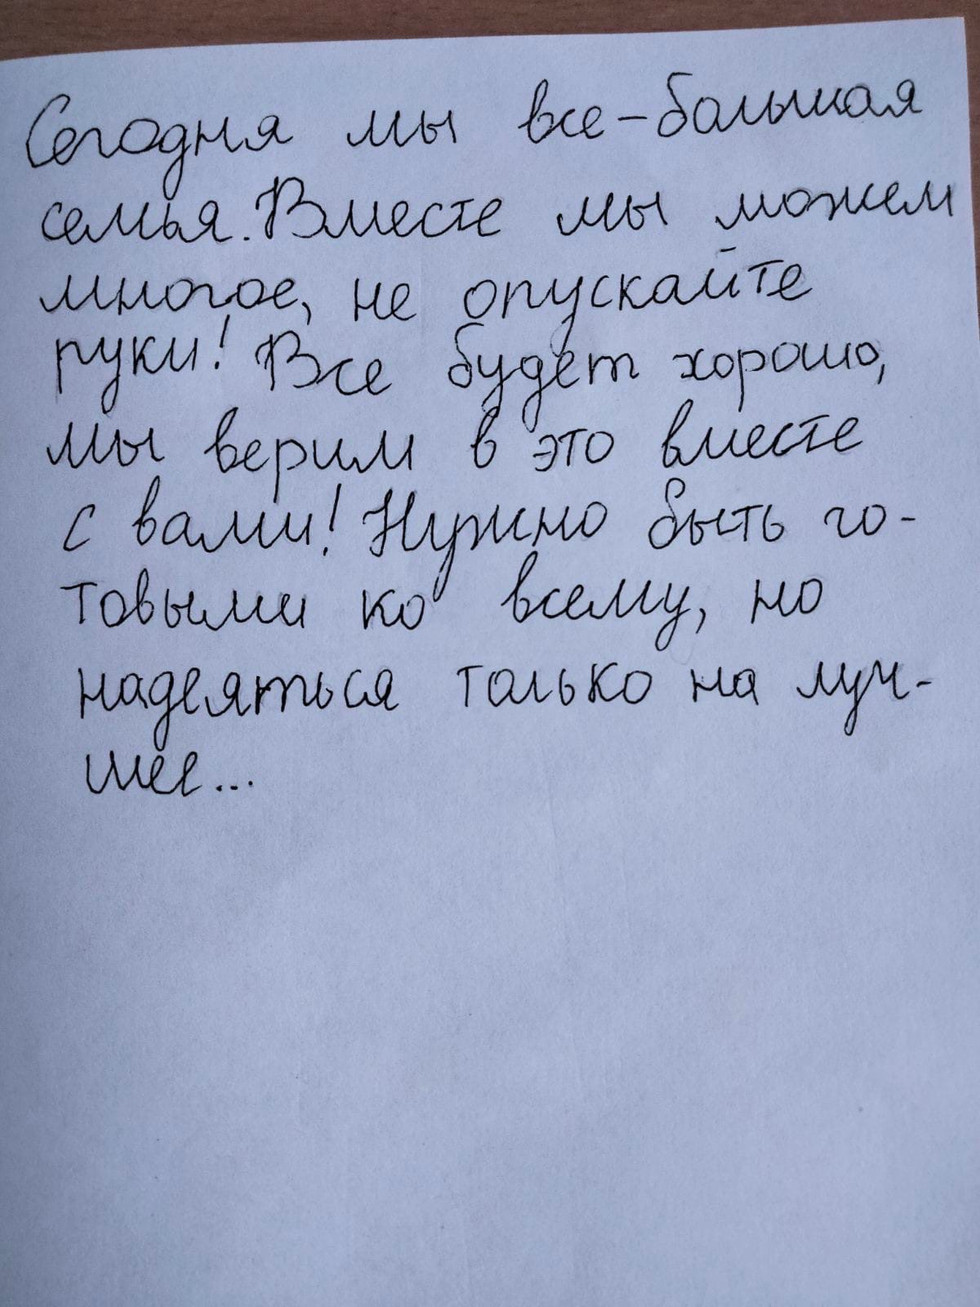 Сегодня мы все - большая
семья. Вместе мы можем
многое, не опускайте
руки! Все будет хорошо,
мы верим в это вместе
с вами! Нужно быть го-
товыми ко всему, но
надеяться только на луч-
шее...